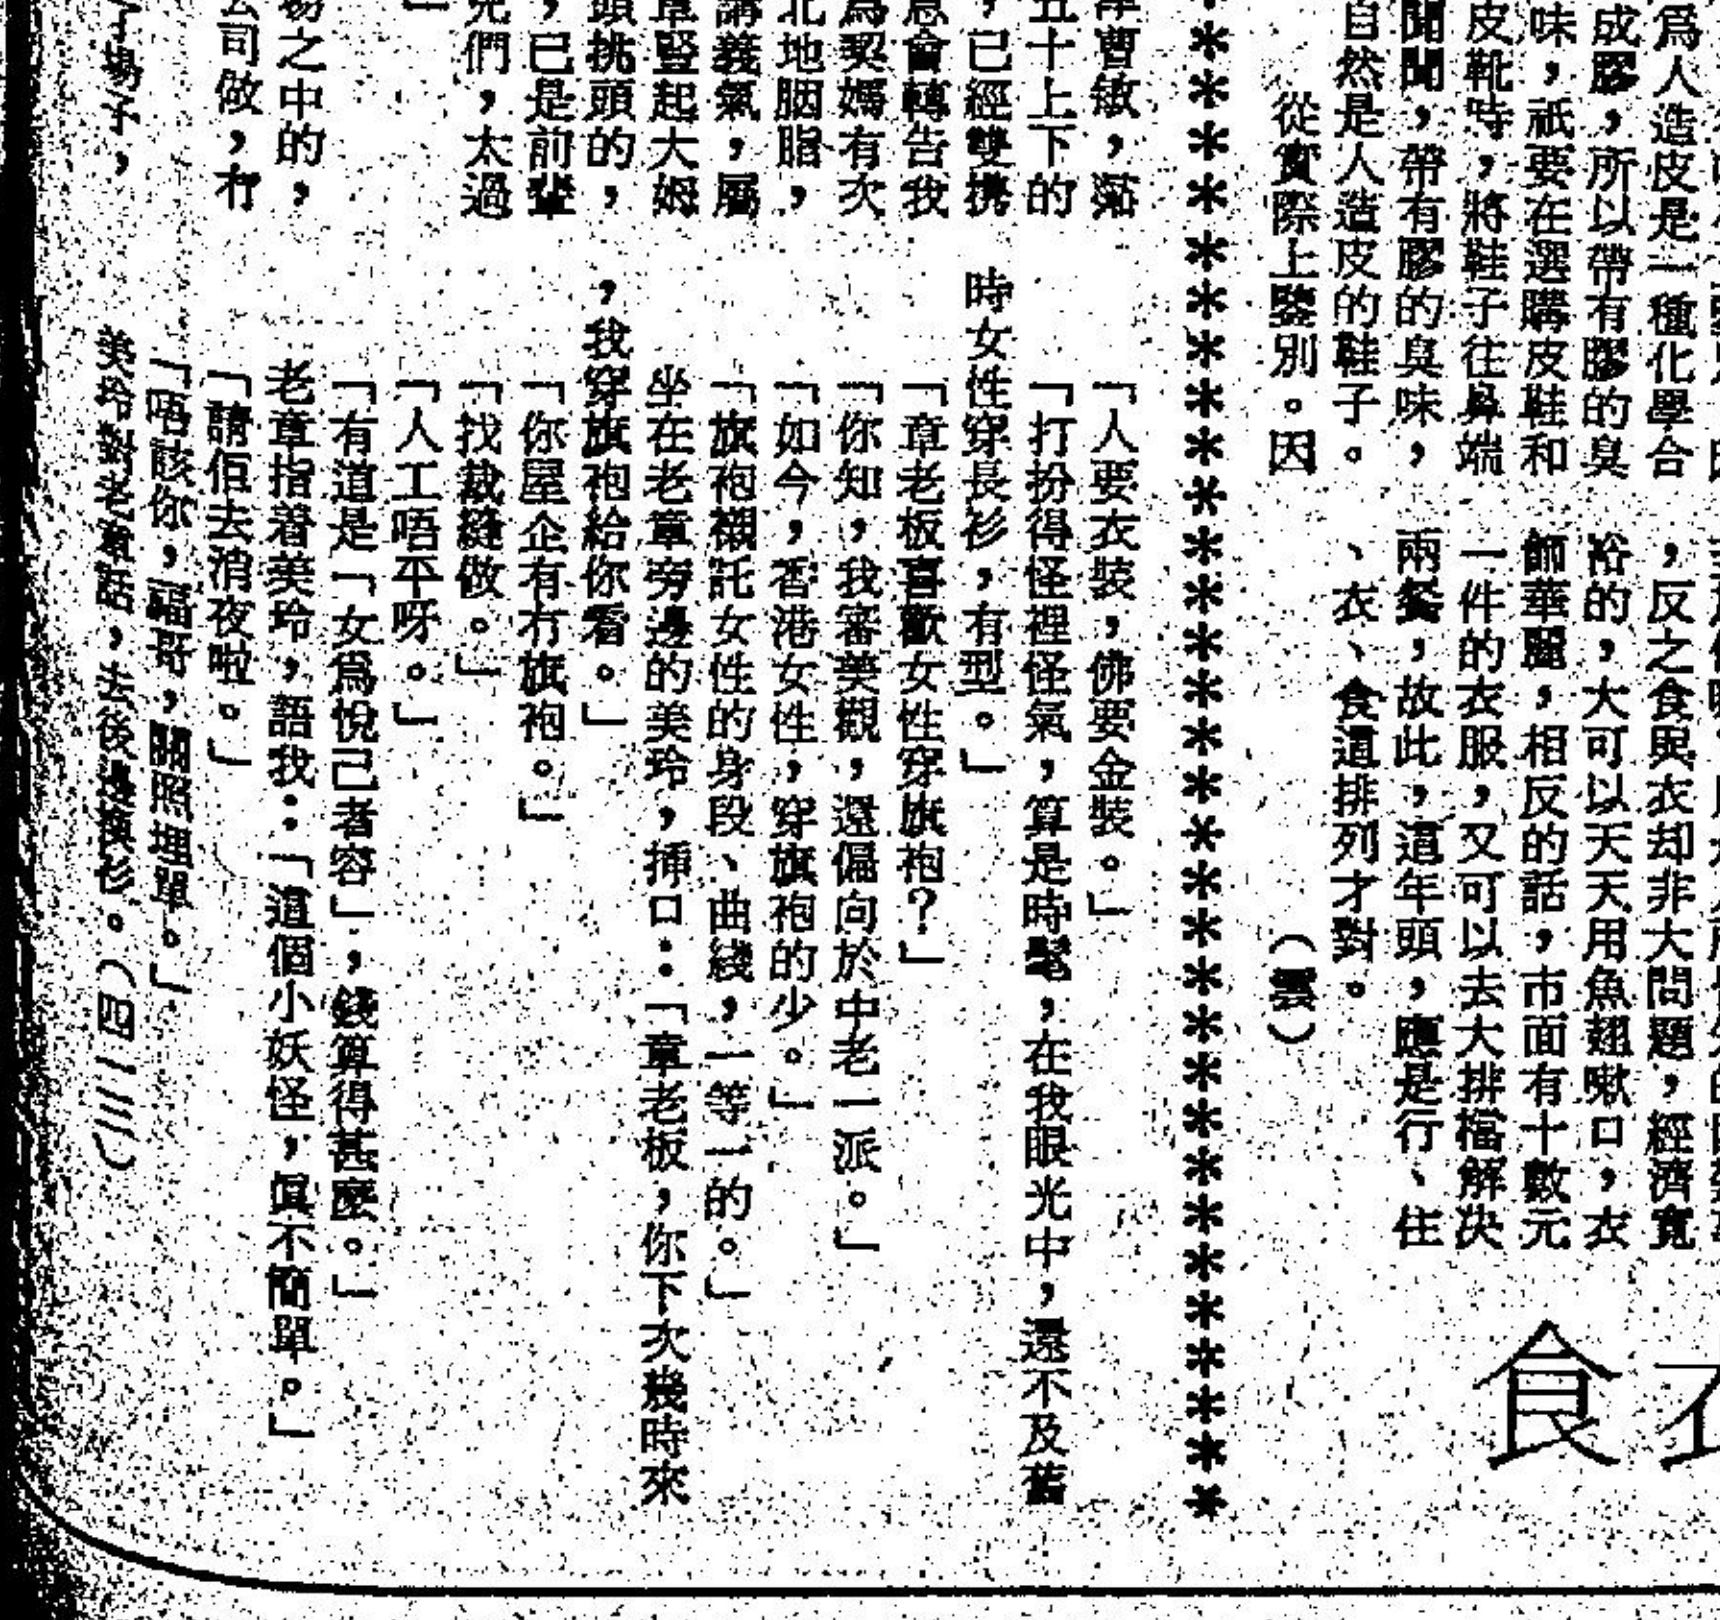 爲人造皮是一種化學合
成膠，所以帶有膠的臭
味，祇要在選購皮鞋和
皮靴時，將鞋子往鼻端
聞聞，帶有膠的臭味，
自然是人造皮的鞋子。
從實際上鑒別。因
，反之食與衣却非大問題，經濟寬
裕的，大可以天天用魚翅嗽口，衣
飾華麗，相反的話，市面有十數元
一件的衣服，又可以去大排檔解决
兩餐，故此，這年頭，應是行、住
、衣、食這排列才對。
（雲）
食
＊＊＊＊＊＊＊＊＊＊＊＊＊＊＊＊＊＊＊＊＊＊＊＊＊＊＊＊＊＊＊
曹敏，
五十上下的
，已經雙携
意會轉告我
為契媽有次
北地胭脂，
講義氣，屬
章豎起大姆
頭挑頭的，
，已是前輩
兄們，太過
」
易之中的，
公司做，冇
子場子，
「人要衣裝，佛要金裝。」
「打扮得怪裡怪氣，算是時髦，在我眼光中，還不及舊
時女性穿長衫，有型。」
「章老板喜歡女性穿旗袍？」
「你知，我審美觀，還偏向於中老一派。」
「如今，香港女性，穿旗袍的少。」
「旗袍襯託女性的身段、曲綫，一等一的。」
坐在老章旁邊的美玲，揷口：「章老板，你下次幾時來
，我穿旗袍給你看。」
「你屋企有冇旗袍。」
「找裁縫做。」
「人工唔平呀。」
「有道是「女爲悅己者容」，錢算得甚麼。」
老章指着美玲，語我：「這個小妖怪，眞不簡單。」
「請佢去消夜啦。」
「唔該你，福哥，關照埋單。」
美玲對老章話，去後邊換衫。（四一三三）